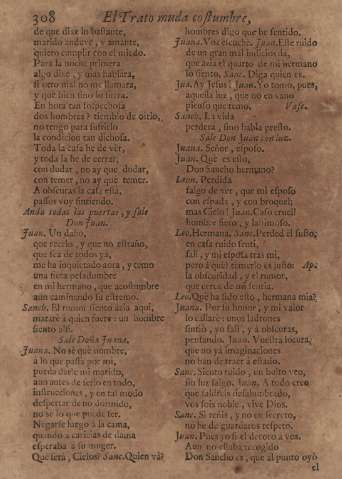 308 El Trato muda costumbre,
de que dixe lo bastante,
marido anduve, y amante,
quiero cumplir con el miedo.
Para la noche primera
algo dixe, y mas hablàra,
si otro mal no me llamara,
y què bien sino le fuera.
En hora tan sospechosa
dos hombres? tiemblo de oirlo,
no tengo para sufrirlo
la condicion tan dichosa.
Toda la casa he de ver,
y toda la he de cerrar,
con dudar, no ay que dudar,
con temer, no ay que temer.
A obscuras la casa està,
passos voy sintiendo.
Anda todas las puertas, y sale
Don Juan.
Juan. Un daño,
que recelo, y que no estraño,
que sea de todos yà,
me ha inquietado aora, y como
una fiera pesadumbre
en mi hermano, que acostumbre
aun caminando su estremo.
Sanch. El rumor siento azia aqui,
matarè à quien fuere: un hombre
siento alli.
Sale Doña Juana.
Juana. No sè què nombre,
à lo que passa por mi,
pueda darle mi marido,
aun antes de serlo en todo,
instrucciones, y en tal modo
despertar de no dormido,
no se lo que puede ser.
Negarse luego à la cama,
quando à caricias de dama
esperaba à su muger.
Que serà, Cielos? Sanc. Quien và?
hombres digo que he sentido.
Juana. Voz escucho. Juan. Este ruido
de un gran mal indicios da,
que azia el quarto de mi hermano
lo siento. Sanc. Diga quien es.
Jua. Ay Jesus! Juan. Yo tomo, pues,
aquella luz, que no en vano
picoso que temo. Vase.
Sanch. La vida
perdera, sino habla presto.
Sale Don Juan con luz.
Juana. Señor, esposo.
Juan. Què es esto,
Don Sancho hermano?
Leon. Perdida
salgo de ver, que mi esposo
con espada, y con broquel;
mas Cielo! Juan. Caso cruel!
horrible fiero, y lastimoso.
Leo. Hermana. Sanc. Perded el susto;
en casa ruido sentì,
salì, y mi esposa tras mi,
pero à què? temerlo es justo: Ap.
la obscuridad, y el rumor,
que cerca de mi sentia.
Leo. Què ha sido esto, hermana mia?
Juana. Por tu honor, y mi valor
lo estarè: unos ladrones
sintiò, yo salì, y à obscuras,
pensando. Juan. Vuestra locura,
que no ya imaginaciones
no han de traer à estado.
Sanc. Siento ruido, un bulto veo,
sin luz salgo. Juan. A todo creo
que saldreis desalumbrado,
vos sois noble, vive Dios.
Sanc. Si reñis, y no en secreto,
no he de guardaros respeto.
Juan. Pues yo si el devoto à vos.
Aun no estaba recogido
Don Sancho es, que al punto oyò
el